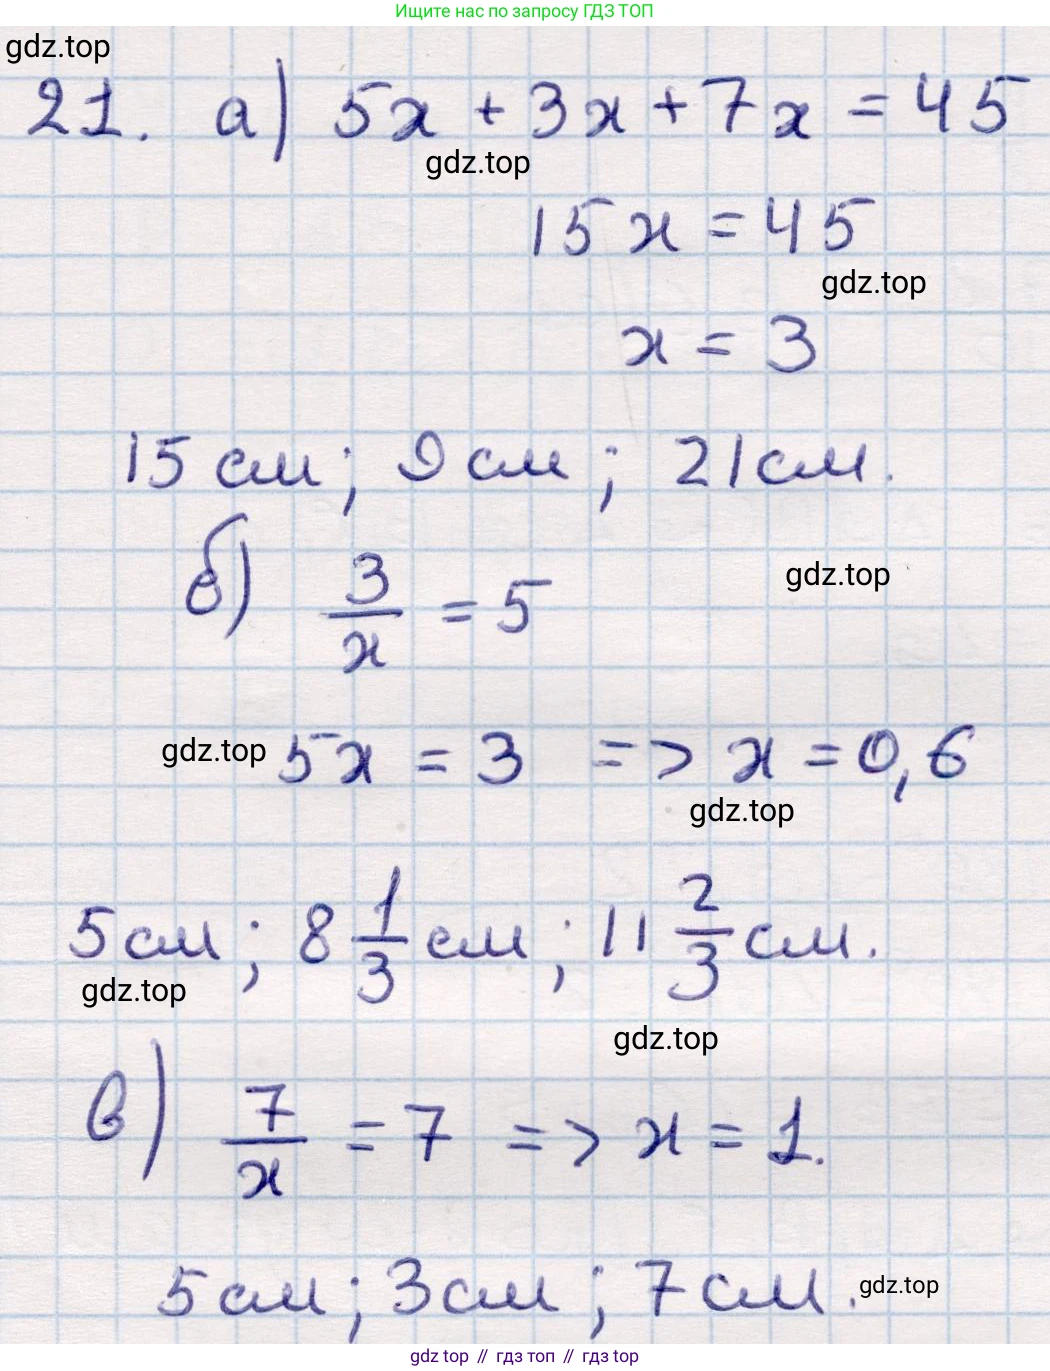 Ищите нас по запросу ГДЗ ТОП
gdz.top
21. а) 5x + 3x + 7x = 45
gdz.top
15x = 45
gdz.top
x = 3
15 см; 9 см; 21 см.
б) 3/x = 5
gdz.top
gdz.top
5x = 3 => x = 0,6
gdz.top
5 см; 8 1/3 см; 11 2/3 см.
gdz.top
gdz.top
в) 7/x = 7 => x = 1.
5 см; 3 см; 7 см.
gdz.top
gdz top // гдз топ // гдз top